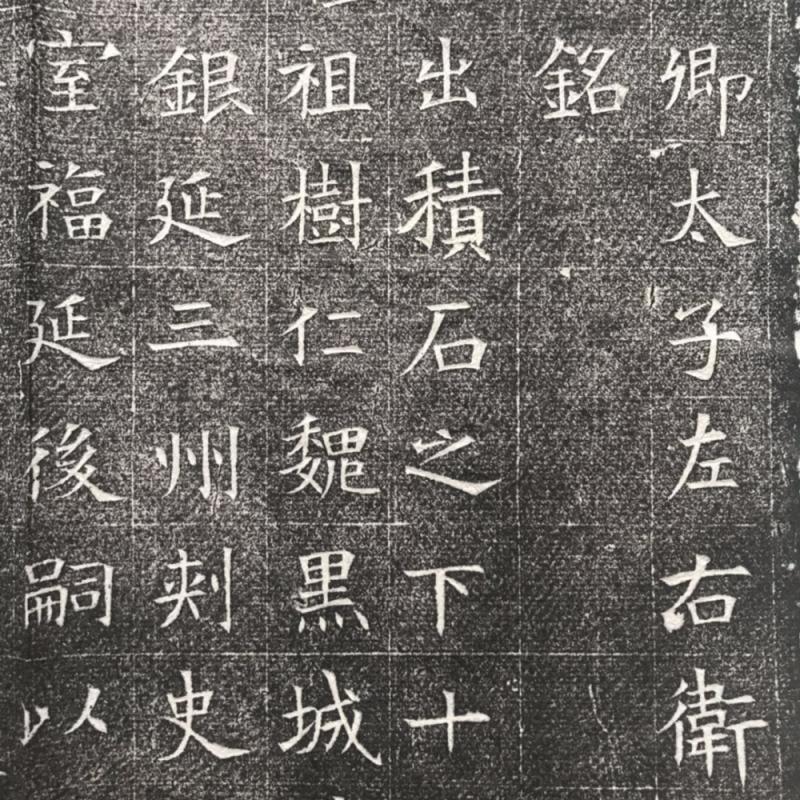 卿太子左右衛
銘
出積石之下十
祖樹仁魏黑城
銀延三州刾史
室福延後嗣以